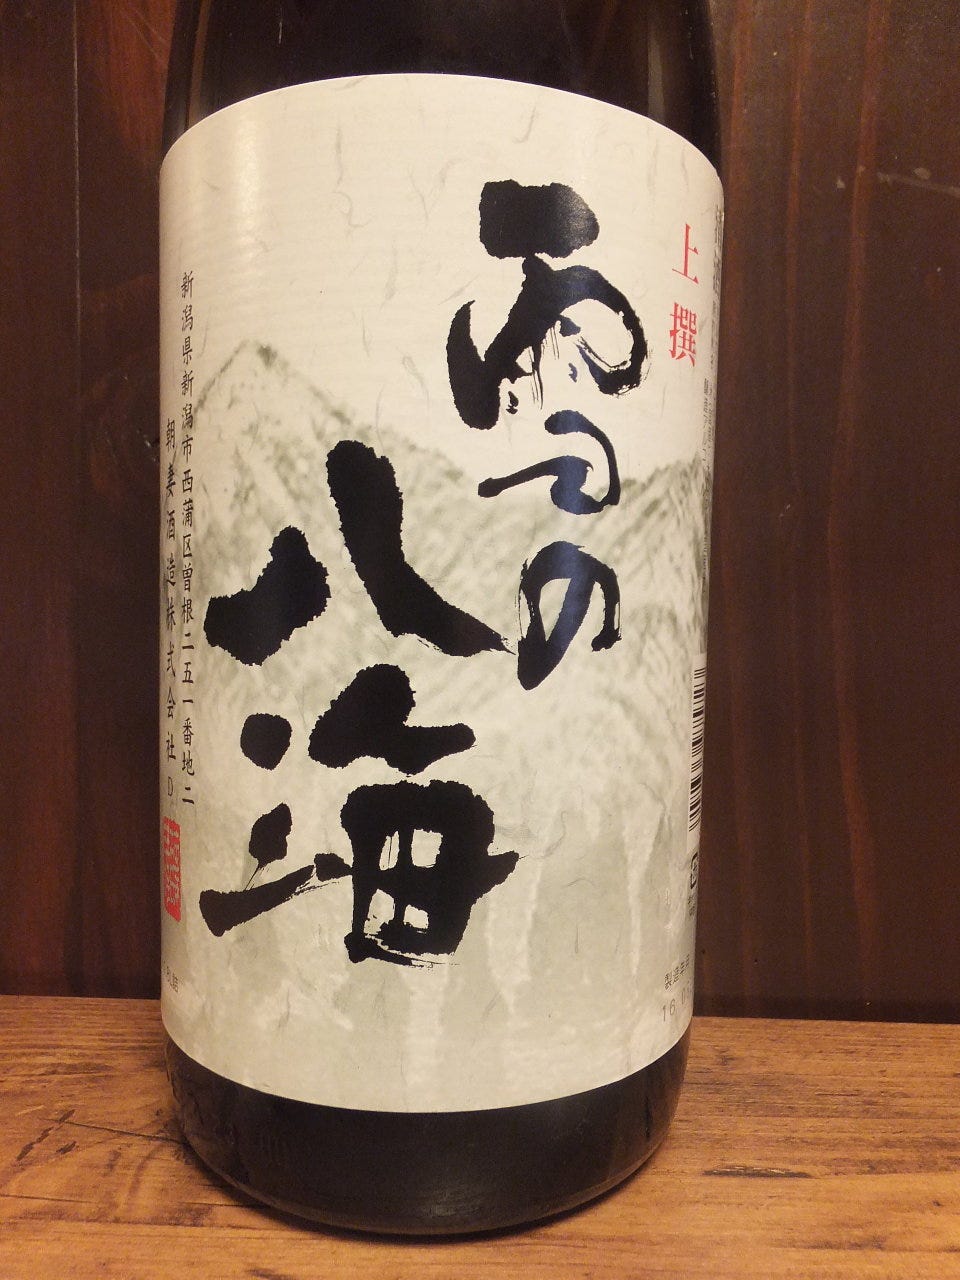 上撰
雪の
八海
新潟県新潟市西蒲区曽根二五一番地二
朝妻酒造株式会社D
製造年月
16.0